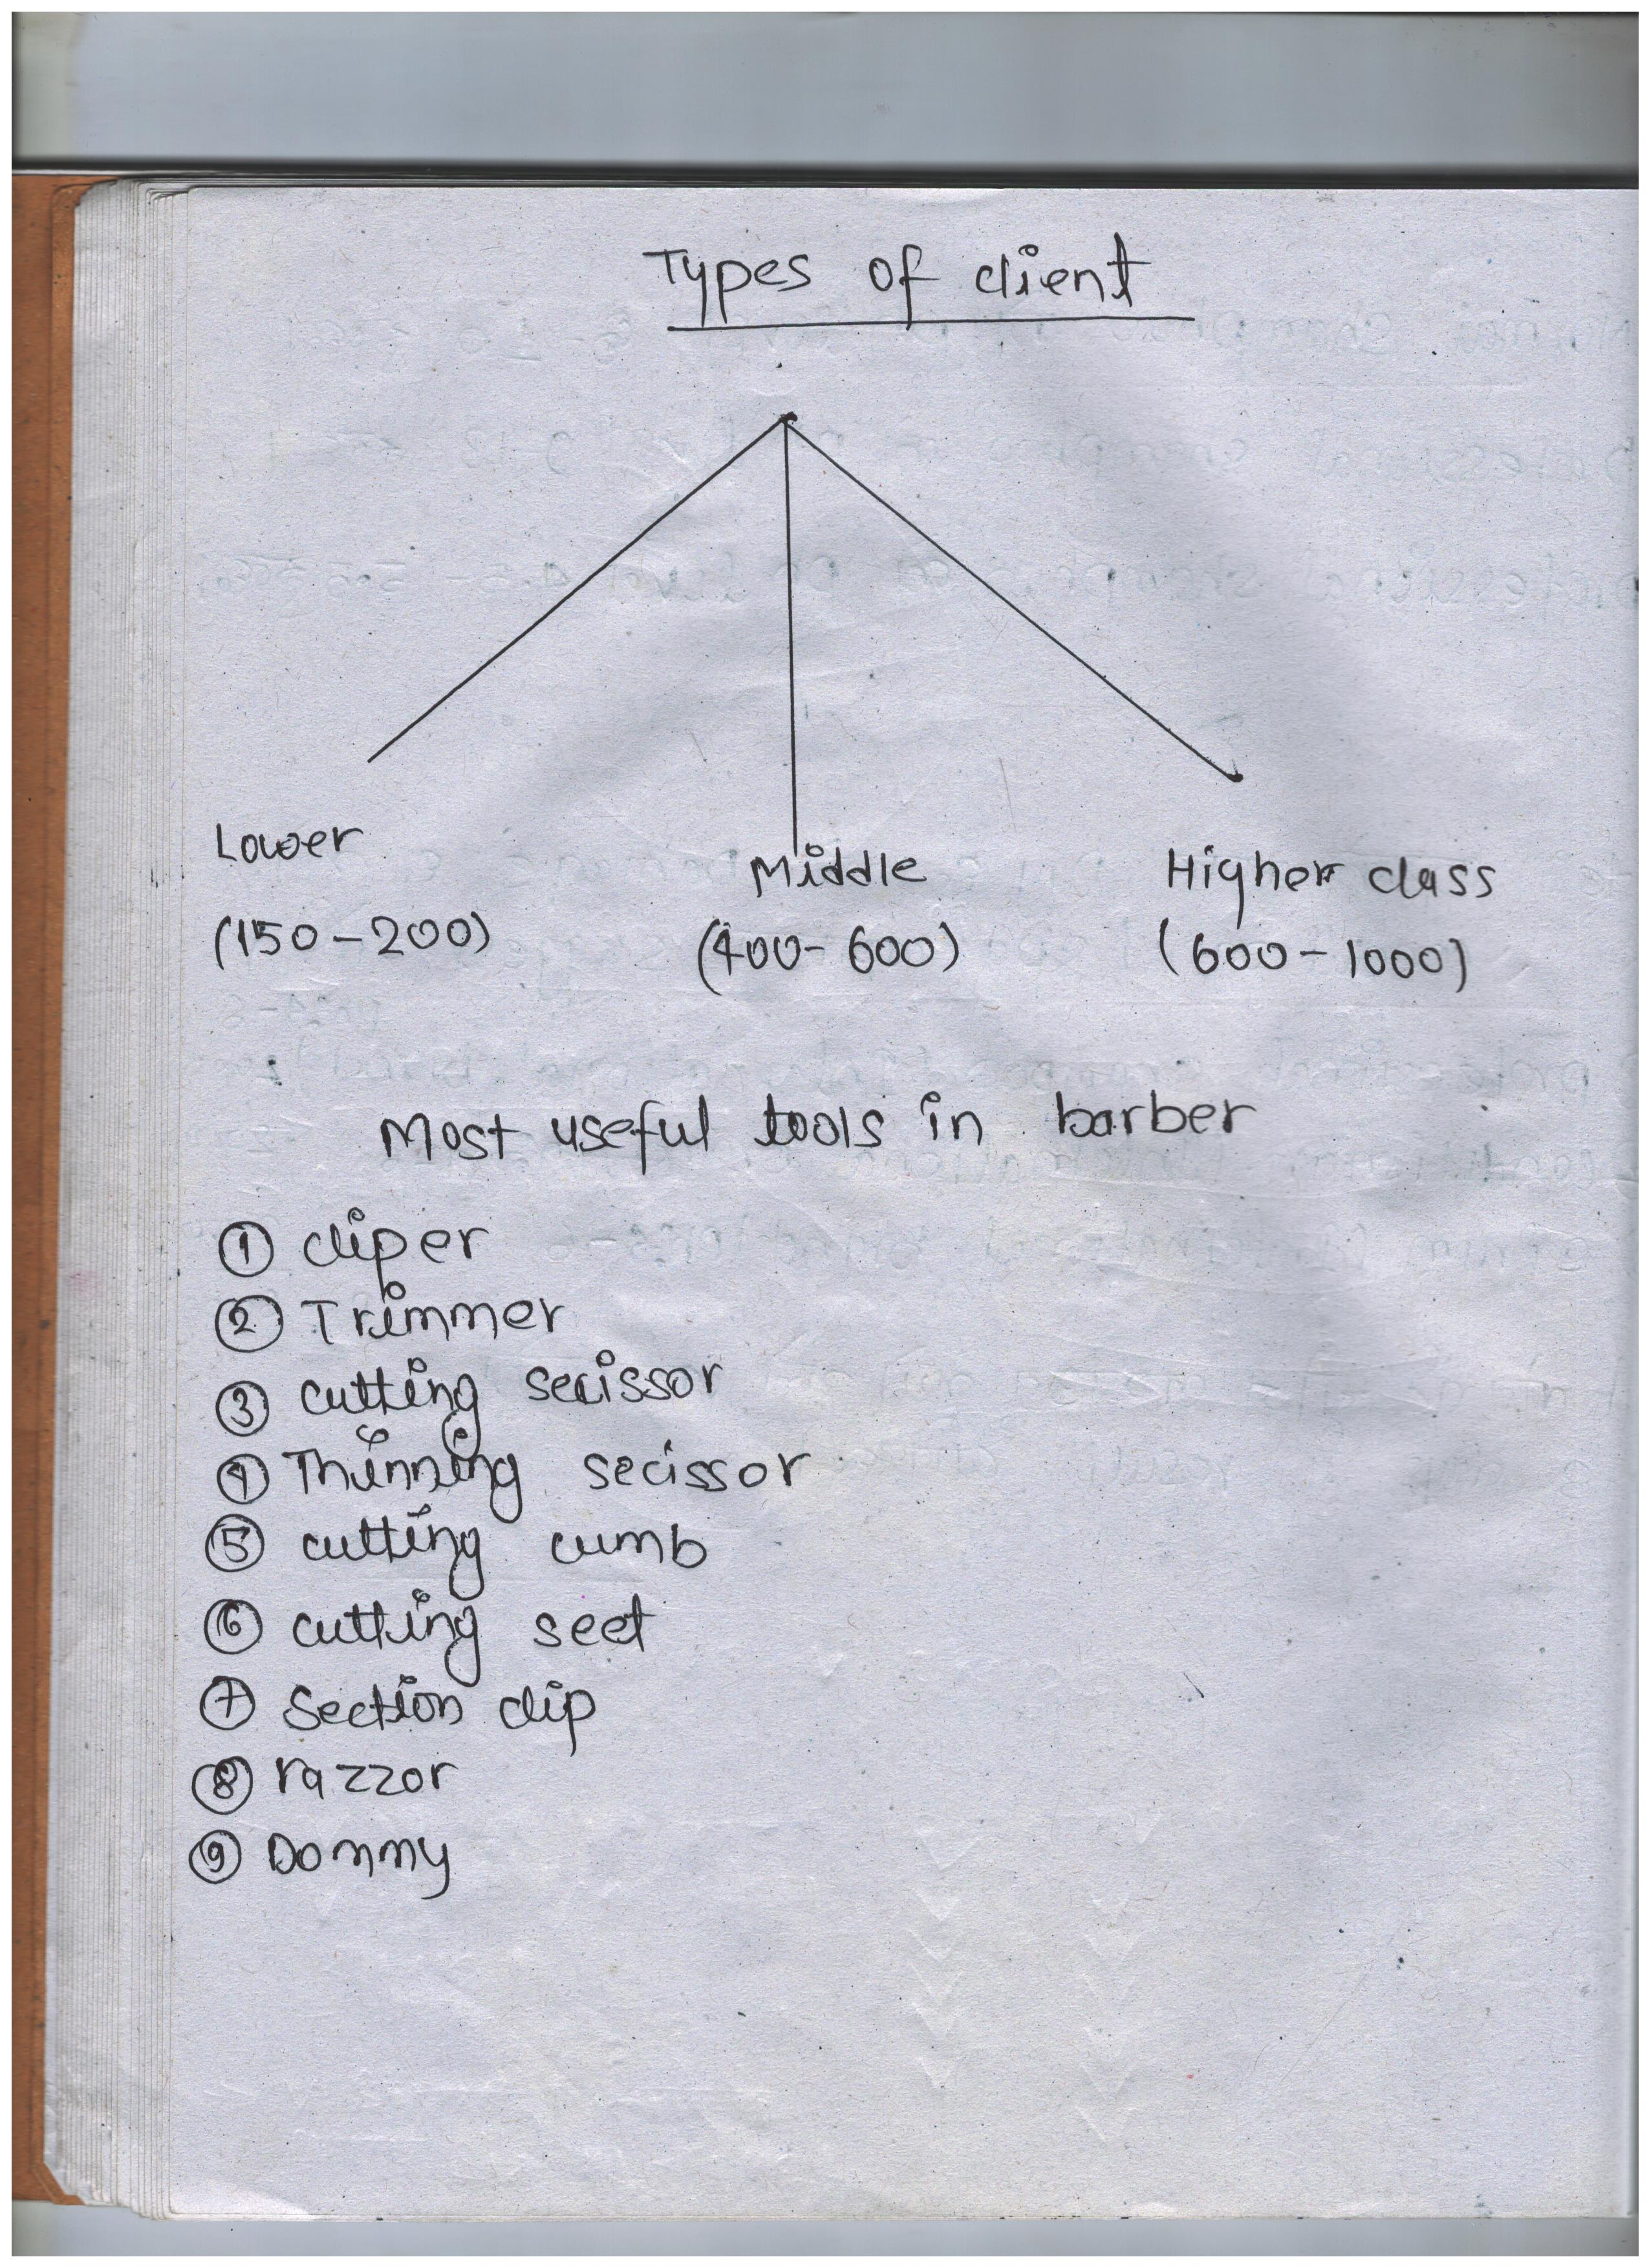 Types of client
Lower
Middle
Higher class
(150-200)
(400-600)
(600-1000)
Most useful tools in barber
① cliper
② Trimmer
③ cutting secissor
④ Thinning secissor
⑤ cutting cumb
⑥ cutting seet
⑦ Section clip
⑧ razzor
⑨ Dommy